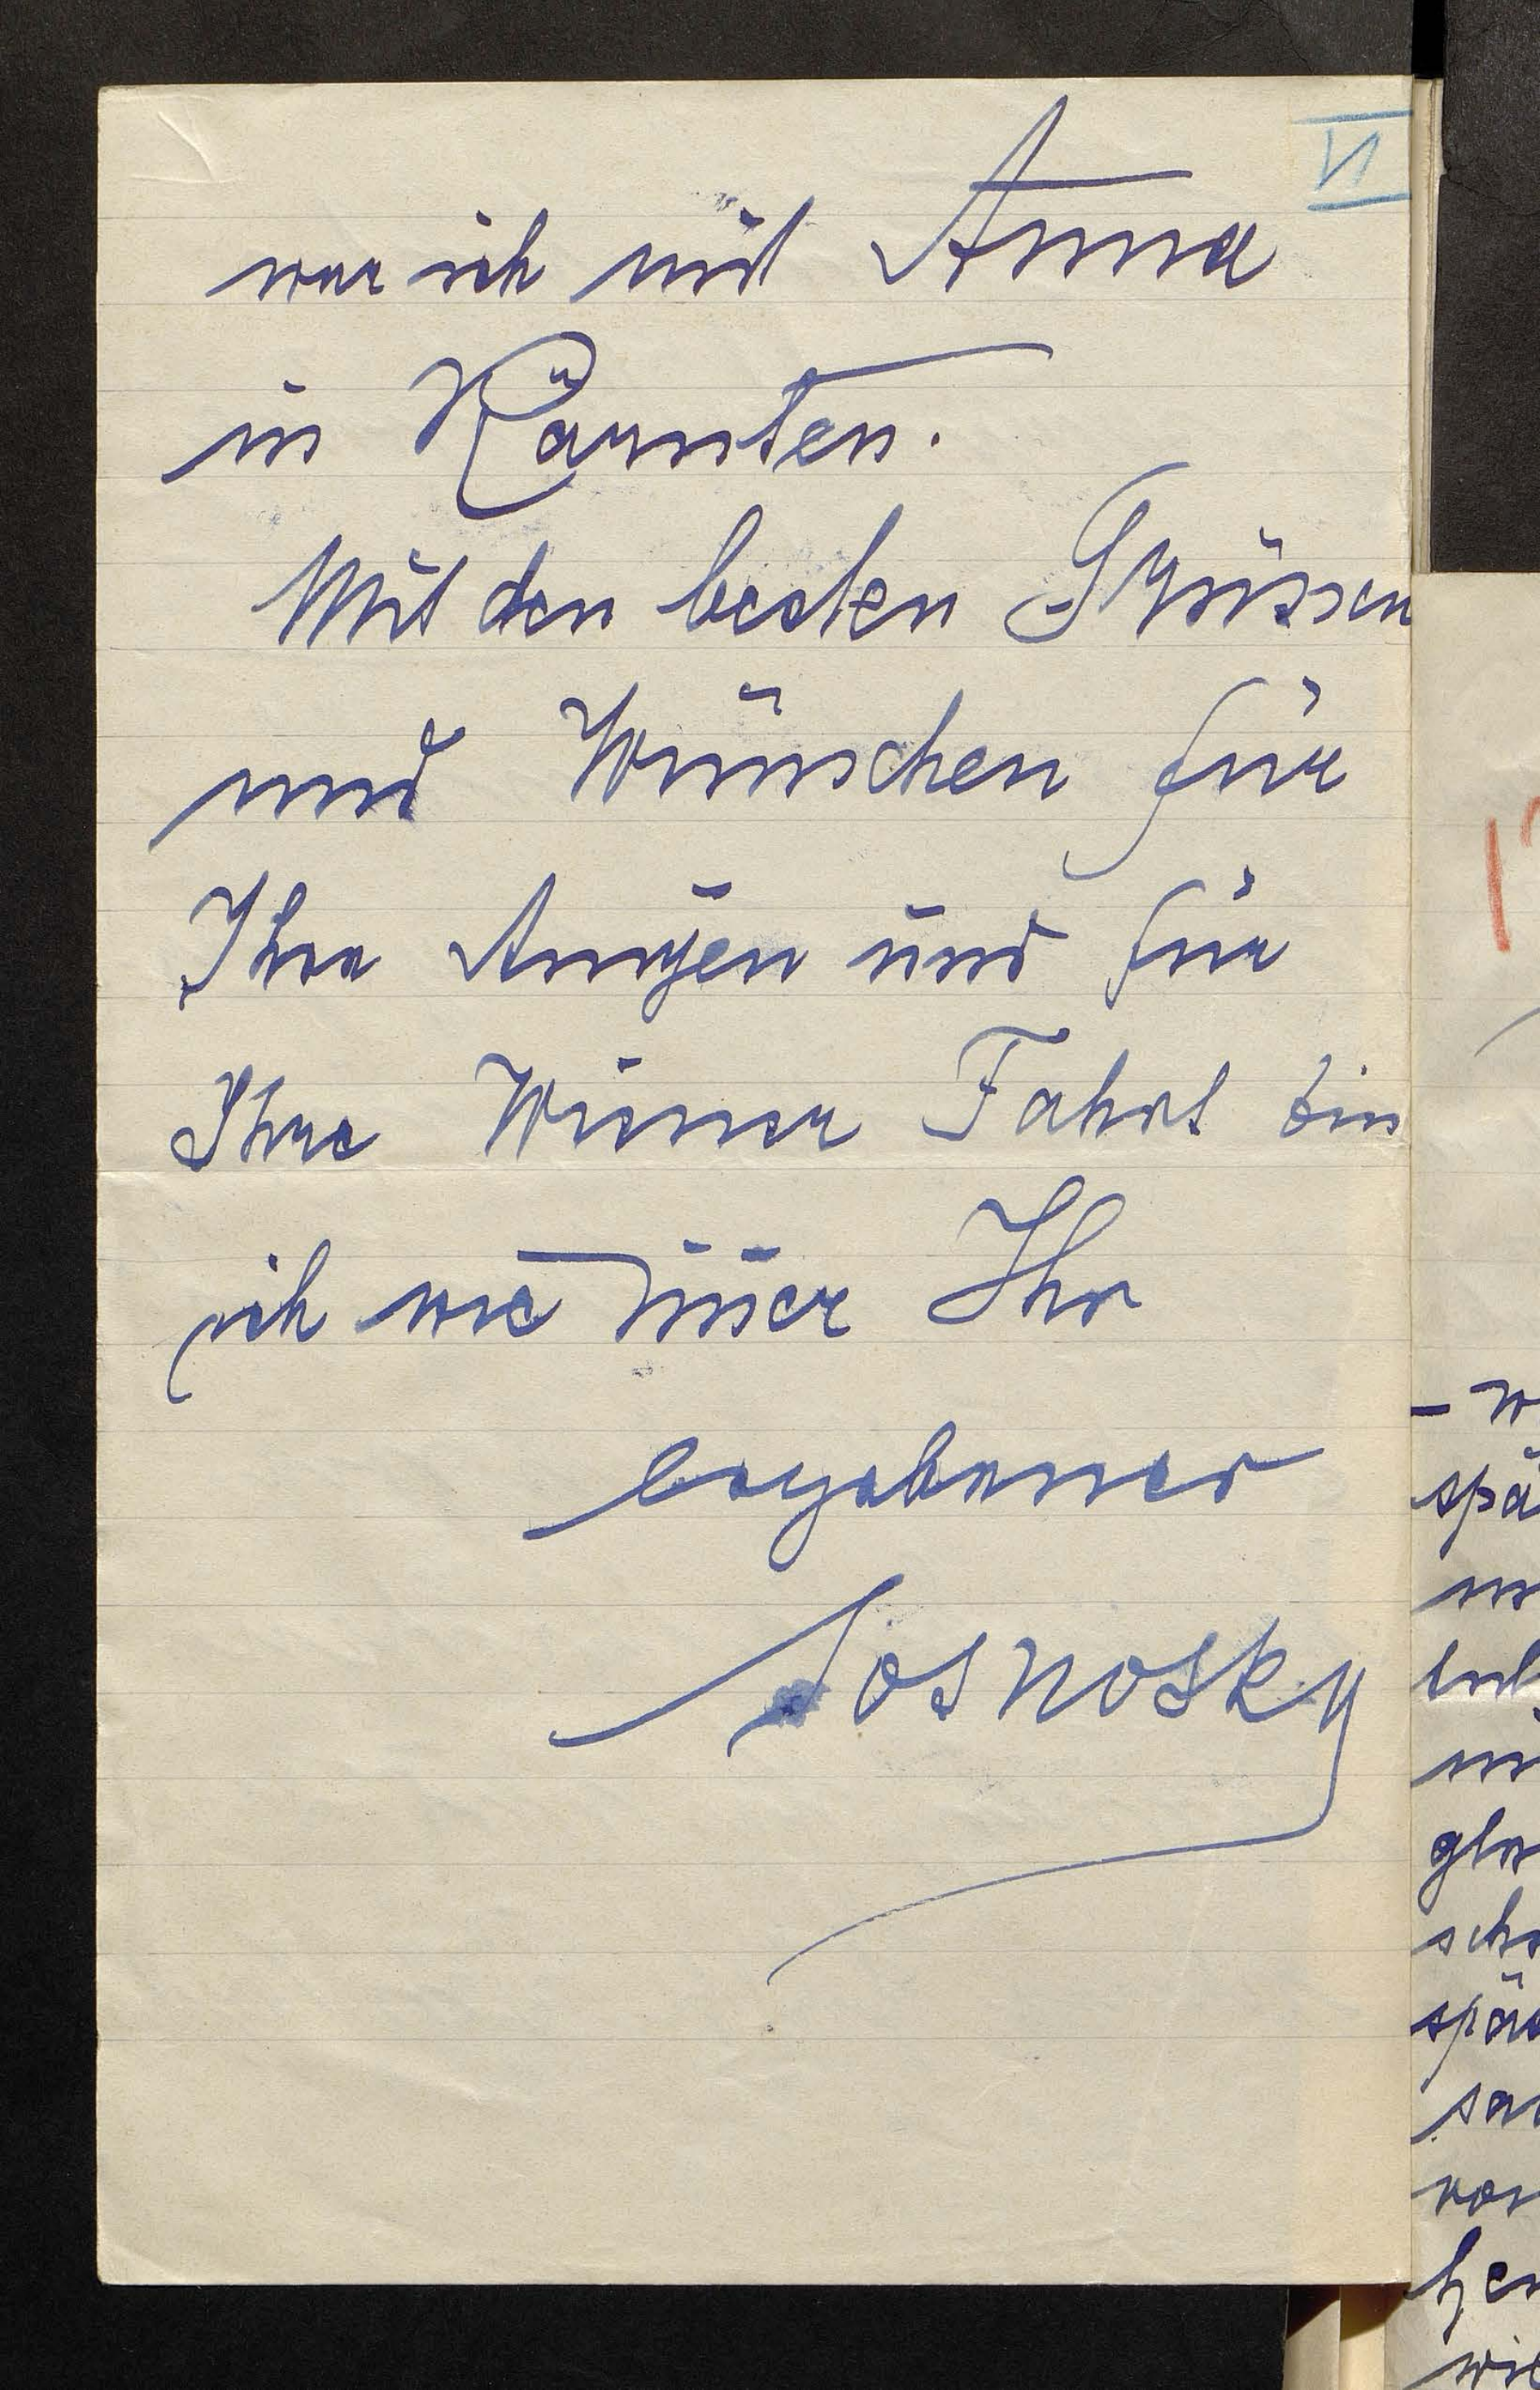 VI
war ich mit Anna
in Kärnten.
Mit den besten Grüssen
und Wünschen für
Ihre Augen und für
Ihre Wiener Fahrt bin
ich wie immer Ihr
ergebener
Sosnosky
- w
spä
gla
scho
spä
sa
von
wie